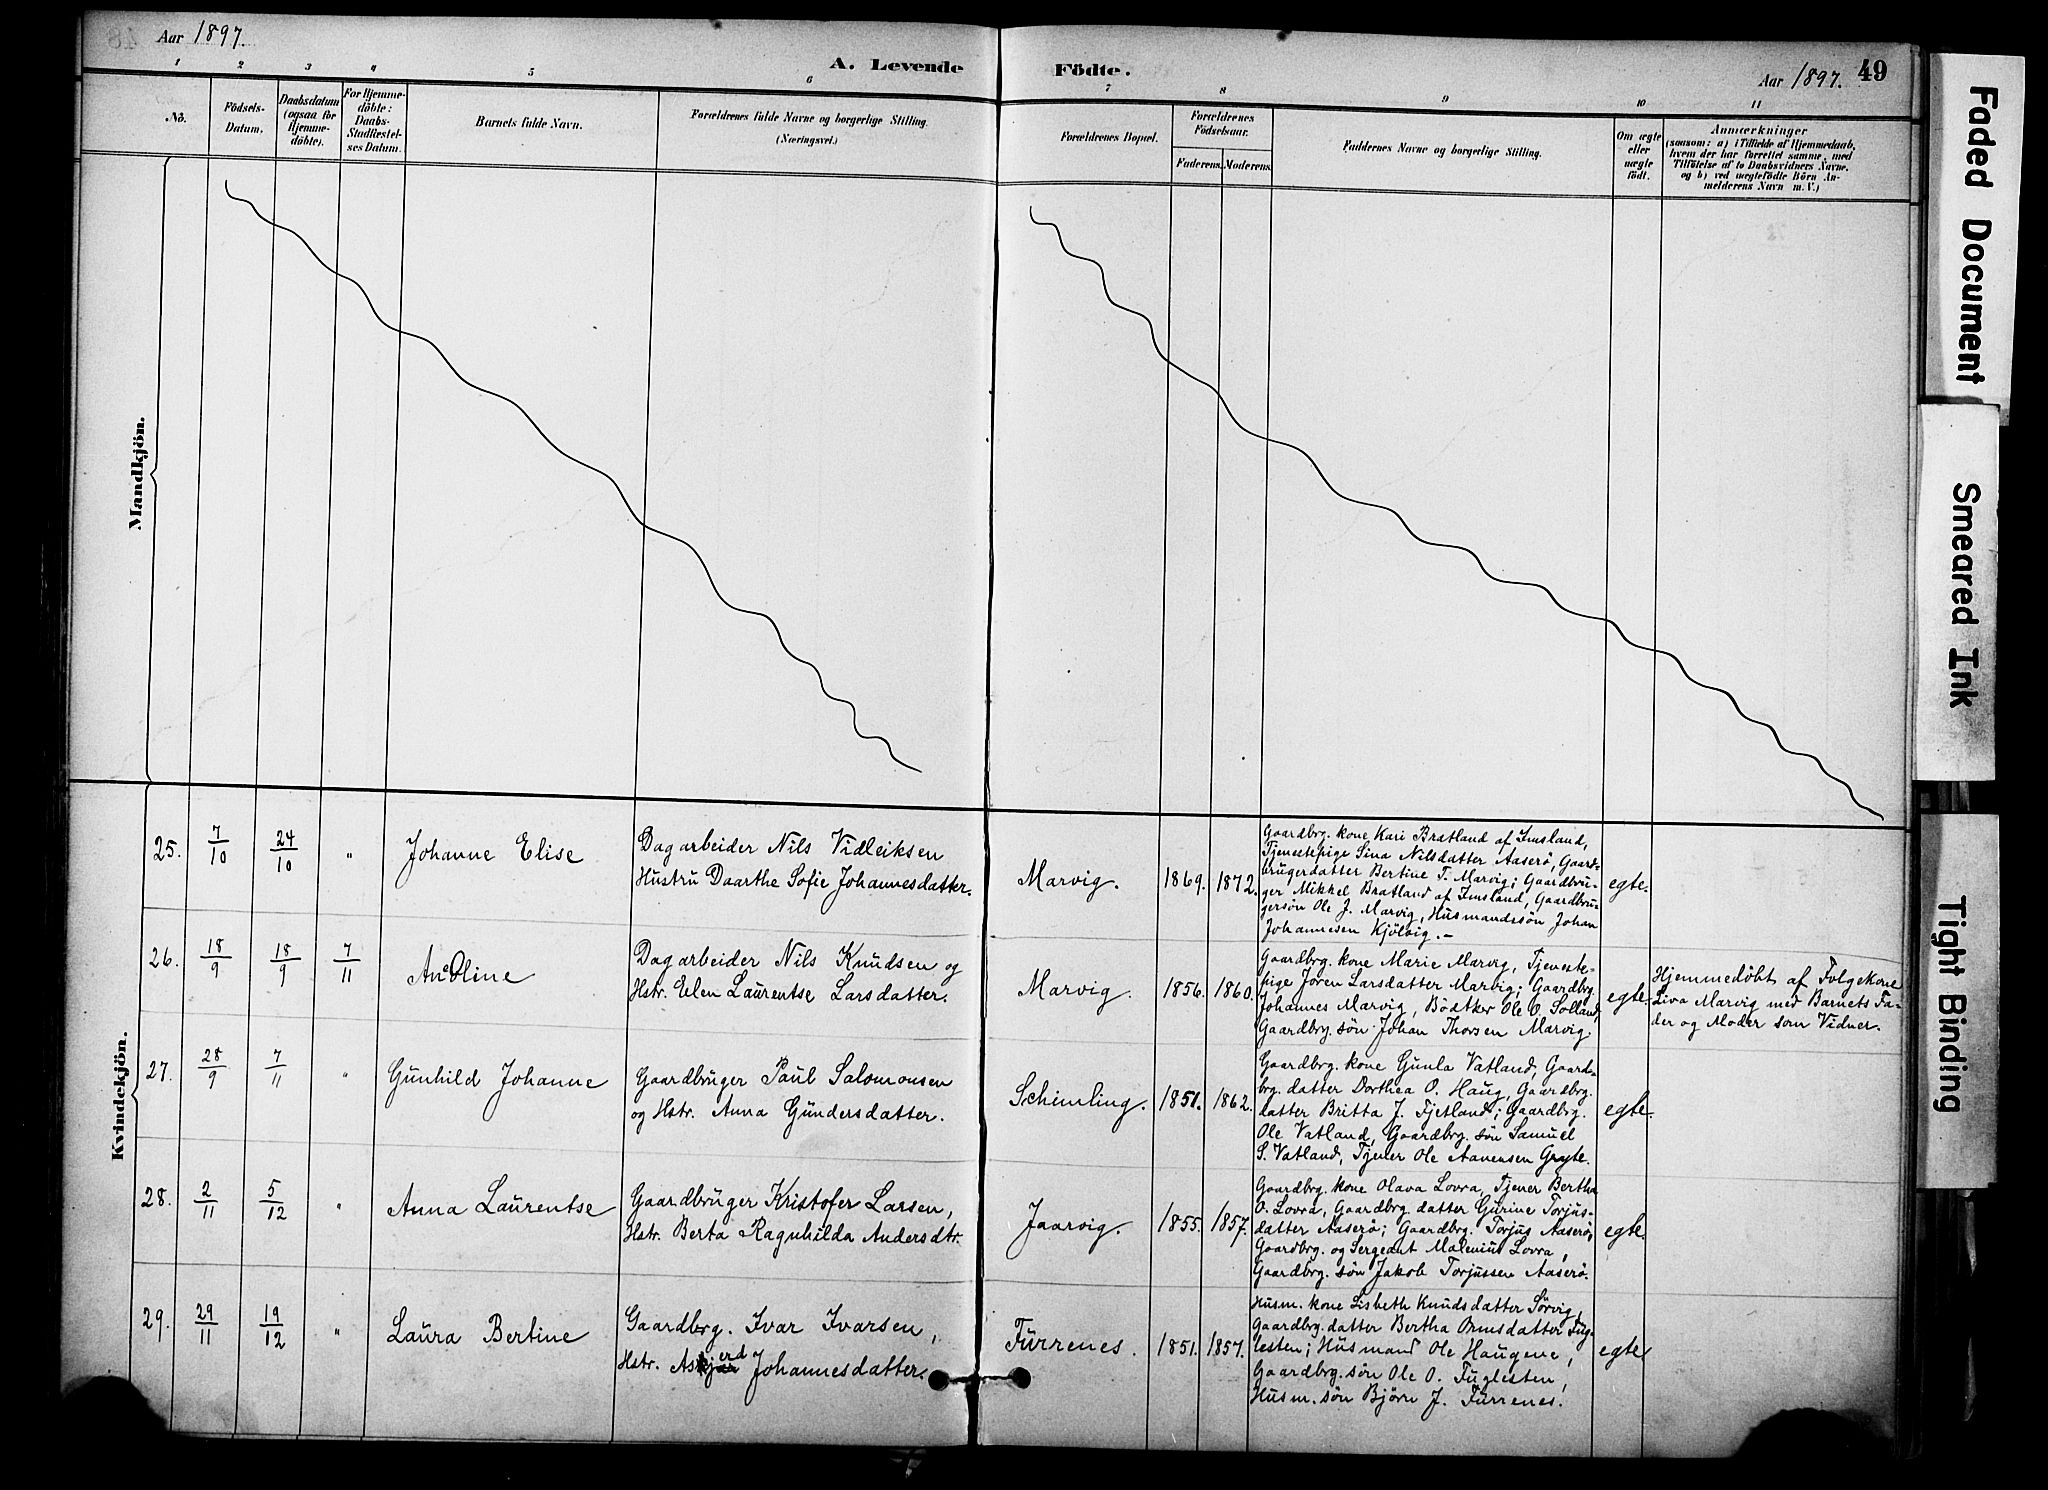 Aar 1897.
A. Levende Födte.
Aar 1897. 49
1 2 3 4 5 6 7 8 9 10 11
No.
Födsels-
Datum.
Daabsdatum
(ogsaa for
Hjemme-
döbte).
For Hjemme-
döbte:
Daabs-
Stadfæstel-
ses Datum.
Barnets fulde Navn.
Forældrenes fulde Navne og borgerlige Stilling.
(Næringsvei.)
Forældrenes Bopæl.
Forældrenes
Födselsaar.
Faderens. Moderens.
Faddernes Navne og borgerlige Stilling.
Om ægte
eller
uægte
födt.
Anmærkninger
(saasom: a) i Tilfælde af Hjemmedaab,
hvem der har forrettet samme, med
Tilföielse af to Daabsvidners Navne.
og b) ved uægtefödte Börn An-
melderens Navn m. V.)
Mandkjön.
Kvindekjön.
25. 7/10 24/10 " Johanne Elise
Dagarbeider Nils Vidleiksen
Hustru Daarthe Sofie Johannesdatter.
Marvig. 1869. 1872.
Gaardbrg. kone Kari Bratland af Imsland,
Tjenestepige Sina Nilsdatter Aaserö, Gaard-
brugerdatter Bertine T. Marvig; Gaardbru-
ger Mikkel Bratland af Imsland, Gaardbru-
gersön Ole J. Marvig, Husmandssön Johan
Johannesen Kjölvig.-
egte.
26. 18/9 18/9 7/11 Ane Oline
Dagarbeider Nils Knudsen og
Hstr. Elen Laurentse Larsdatter.
Marvig. 1856. 1860.
Gaardbrg. kone Marie Marvig, Tjeneste-
pige Jören Larsdatter Marvig; Gaardbrg.
Johannes Marvig, Bödtker Ole O. Solland,
Gaardbrg. sön Johan Thorsen Marvig.
egte.
Hjemmedöbt af Fölgekone
Liva Marvig med Barnets Fa-
der og Moder som Vidner.
27. 28/9 7/11 " Gunhild Johanne
Gaardbruger Paul Salomonsen
og Hstr. Anna Gundersdatter.
Schimling. 1851. 1862.
Gaardbrg. kone Gunla Vatland, Gaard-
brg. datter Dorthea O. Haug, Gaardbrg.
datter Britta J. Fjetland; Gaardbrg.
Ole Vatland, Gaardbrg. sön Samuel
S. Vatland, Tjener Ole Aanensen
egte.
28. 2/11 5/12 " Anna Laurentse
Gaardbruger Kristofer Larsen,
Hstr. Berta Ragnhilda Andersdtr.
Jaarvig. 1855. 1857.
Gaardbrg. kone Olava Lovra, Tjener Bertha
O. Lovra, Gaardbrg. datter Gurine Torjus-
datter Aaserö; Gaardbrg. Torjus Aaserö,
Gaardbrg. og Sergeant Malenius Lovra,
Gaardbrg. sön Jakob Torjussen Aaserö.
egte.
29. 29/11 19/12 " Laura Bertine
Gaardbrg. Ivar Ivarsen,
Hstr. Askjerd Johannesdatter.
Furrenes. 1851. 1857.
Husm. kone Lisbeth Knudsdatter Sörvig,
Gaardbrg. datter Bertha Ormsdatter Fug-
lesten; Husmand Ole Haugene,
Gaardbrg. sön Ole O. Fuglesten,
Husm. sön Björn J. Furrenes.
egte
Faded Document
Smeared Ink
Tight Binding